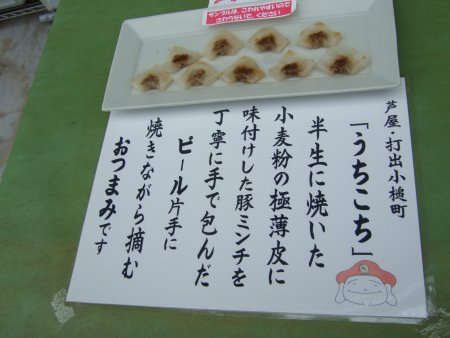 サンプルは、こわれやすいので
さわらないで、ください
芦屋・打出小槌町
「うちこち」
半生に焼いた
小麦粉の極薄皮に
味付けした豚ミンチを
丁寧に手で包んだ
ビール片手に
焼きながら摘む
おつまみです